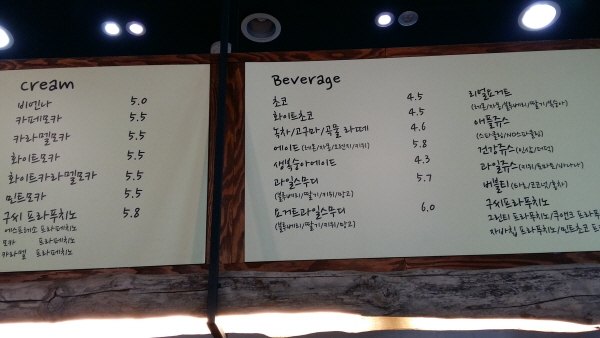 cream
비엔나 5.0
카페모카 5.5
카라멜모카 5.5
화이트모카 5.5
화이트카라멜모카 5.5
민트모카 5.5
구씨 프라푸치노 5.8
에스프레소 프라페치노
모카 프라페치노
카라멜 프라페치노
Beverage
초코 4.5
화이트초코 4.5
녹차/고구마/곡물 라떼 4.6
에이드(레몬/자몽/오렌지/키위) 5.8
생복숭아에이드 4.3
과일스무디 5.7
(블루베리/딸기/키위/망고)
요거트과일스무디 6.0
(블루베리/딸기/키위/망고)
리얼요거트
(레몬/자몽/블루베리/딸기/복숭아)
애플쥬스
건강쥬스
과일쥬스(키위/토마토/바나나)
버블티
구씨프라푸치노
그린티 프라푸치노/쿠앤크 프라푸
자바칩 프라푸치노/민트초코 프